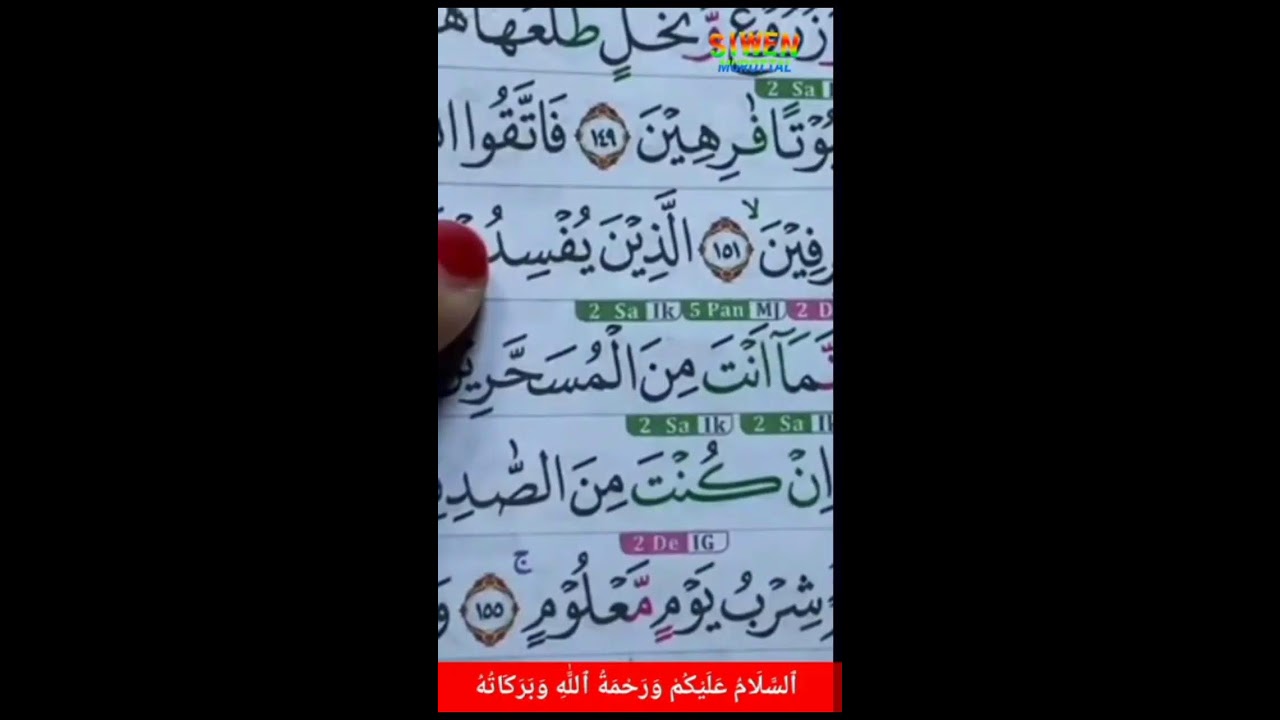 زُرُوْعٍ وَّنَخْلٍ طَلْعُهَا
SIWEN
MUROTTAL
2 Sa
فٰرِهِيْنَ ١٤٩ فَاتَّقُوا
١٥١ الَّذِيْنَ
2 Sa Ik 5 Pan MJ 2 D
اَنْتَ مِنَ الْمُسَحَّرِيْنَ
2 Sa Ik 2 Sa Ik
اِنْ كُنْتَ مِنَ
2 De IG
شِرْبُ يَوْمٍ مَّعْلُوْمٍ ۚ ١٥٥
ٱلسَّلَامُ عَلَيْكُمْ وَرَحْمَةُ ٱللَّٰهِ وَبَرَكَاتُهُ